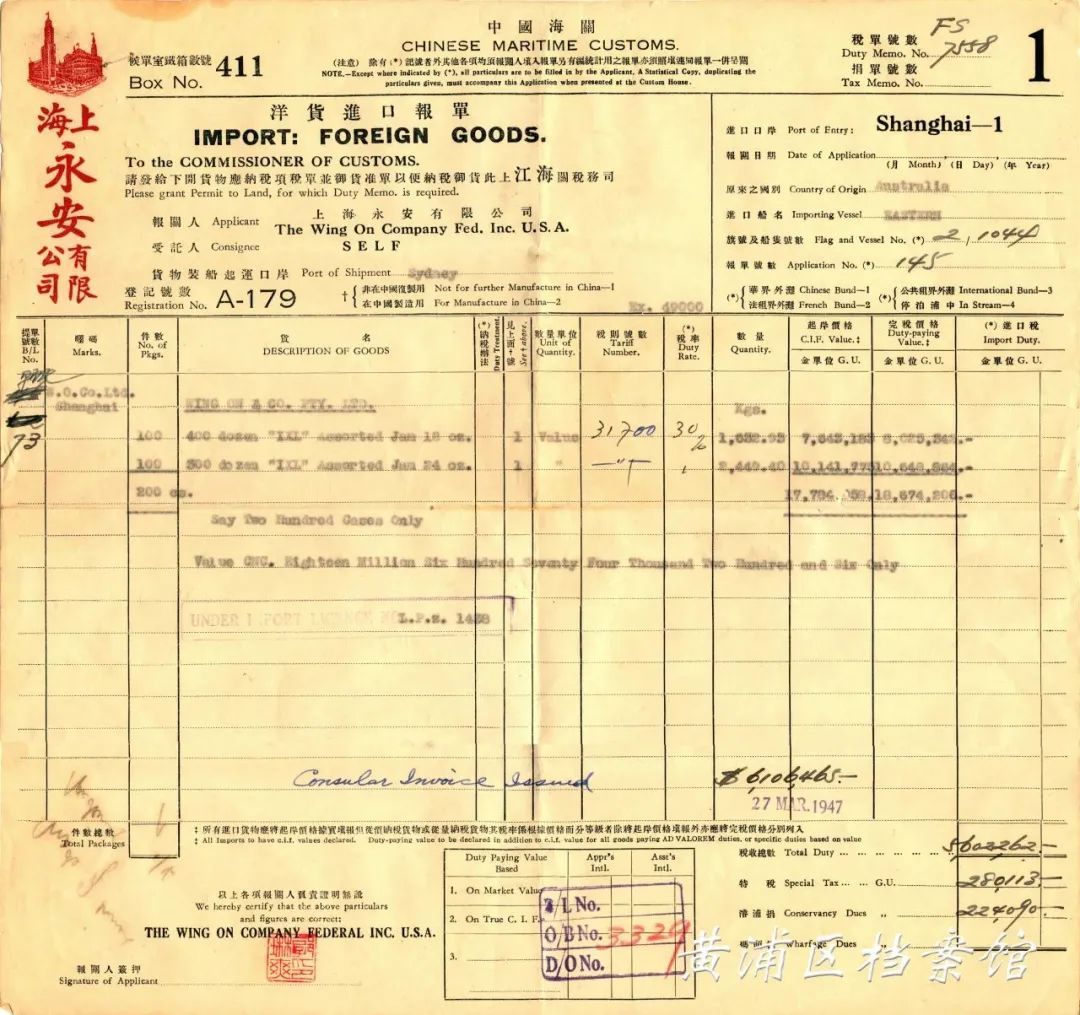 上海
永安
有限公司
候單室鐵箱數號
Box No. 411
中國海關
CHINESE MARITIME CUSTOMS.
NOTE.—Except where indicated by (*), all particulars are to be filled in by the Applicant, A Statistical Copy, duplicating the
particulars given, must accompany this Application when presented at the Custom House.
稅單號數
Duty Memo. No. FS 7558
捐單號數
Tax Memo. No.
1
洋貨進口報單
IMPORT: FOREIGN GOODS.
To the COMMISSIONER OF CUSTOMS.
請發給下開貨物應納稅項稅單並卸貨准單以便納稅卸貨此上江海關稅務司
Please grant Permit to Land, for which Duty Memo. is required.
報關人 Applicant 上海永安有限公司
The Wing On Company Fed. Inc. U.S.A.
受託人 Consignee SELF
貨物裝船起運口岸 Port of Shipment Sydney
登記號數
Registration No. A-179
†{ 非在中國復製用 Not for further Manufacture in China—1
在中國製造用 For Manufacture in China—2
Ex. 49000
進口口岸 Port of Entry: Shanghai—1
報關日期 Date of Application
(月 Month) (日 Day) (年 Year)
原來之國別 Country of Origin Australia
進口船名 Importing Vessel EASTERN
旗號及船隻號數 Flag and Vessel No. (*) 2, 1044
報單號數 Application No. (*) 145
(*){ 華界外灘 Chinese Bund—1
法租界外灘 French Bund—2
(*){ 公共租界外灘 International Bund—3
停泊浦中 In Stream—4
提單號數 B/L No.
嘜碼 Marks.
件數 No. of Pkgs.
貨名
DESCRIPTION OF GOODS
(*) 納稅辦法 Duty Treatment.
見上面†號 See † above.
數量單位 Unit of Quantity.
稅則號數 Tariff Number.
(*) 稅率 Duty Rate.
數量 Quantity.
起岸價格 C.I.F. Value.‡ 金單位 G.U.
完稅價格 Duty-paying Value.‡ 金單位 G.U.
(*) 進口稅 Import Duty. 金單位 G.U.
73
W.O.Co.Ltd.
Shanghai
WING ON & CO. PTY. LTD.
Kgs.
100 400 dozen "IXL" Assorted Jam 12 oz. 1 Value 31700 30%
100 300 dozen "IXL" Assorted Jam 24 oz. 1 " — " —
200 cs.
18,674,206.-
Say Two Hundred Cases Only
Value CNC. Eighteen Million Six Hundred Seventy Four Thousand Two Hundred and Six Only
UNDER IMPORT LICENCE NO. L.P.z. 1438
Consular Invoice Issued
$6106465—
27 MAR. 1947
件數總數
Total Packages
‡ All Imports to have c.i.f. values declared. Duty-paying value to be declared in addition to c.i.f. value for all goods paying AD VALOREM duties, or specific duties based on value
以上各項報關人負責證明無訛
We hereby certify that the above particulars
and figures are correct:
THE WING ON COMPANY FEDERAL INC. U.S.A.
報關人簽押
Signature of Applicant
Duty Paying Value Based
Appr's Intl.
Asst's Intl.
1. On Market Value
2. On True C. I. F.
3.
B/L No.
O/B No. 3329
D/O No.
稅收總數 Total Duty 5602262.—
特稅 Special Tax G.U. 280113.—
濬浦捐 Conservancy Dues „ 224090.—
碼頭捐 Wharfage Dues „
黄浦区档案馆